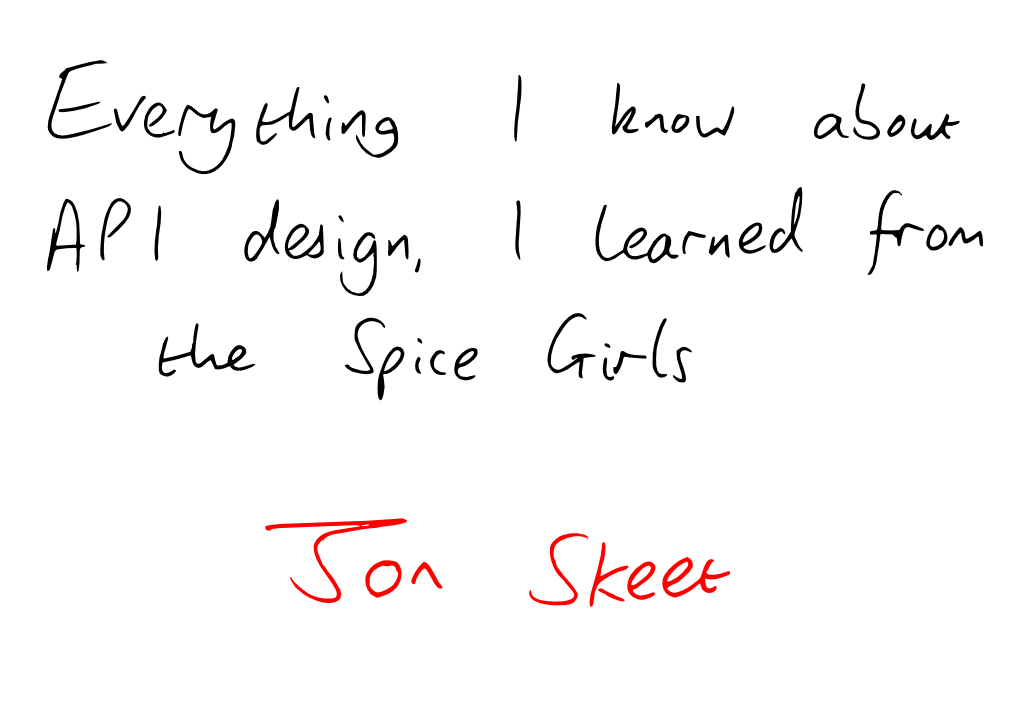 Everything I know about
API design, I learned from
the Spice Girls
Jon Skeet